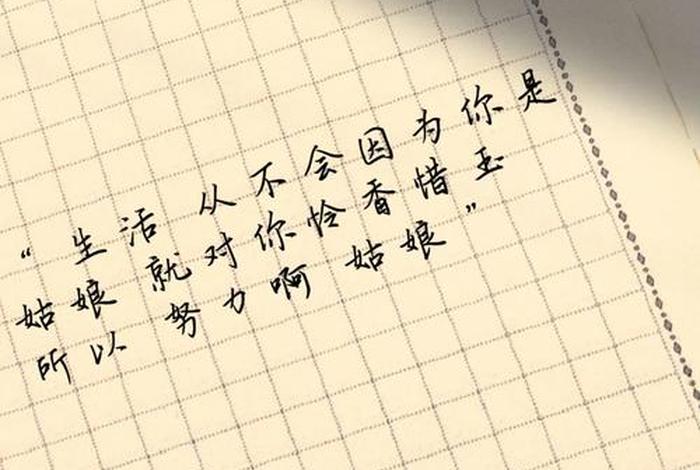 “生活 从不会因为你是
姑娘 就对你怜香惜玉
所以 努力啊 姑娘”